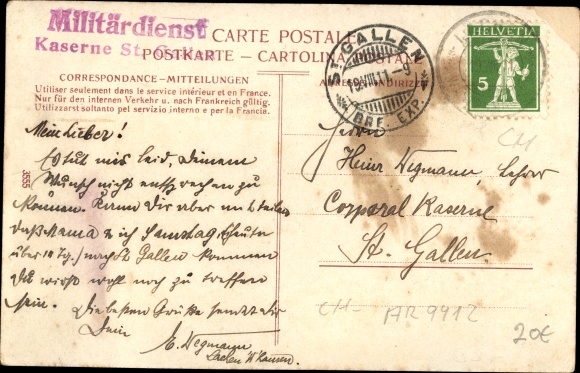 Militärdienst
Kaserne St. Gallen
CARTE POSTALE
POSTKARTE - CARTOLINA POSTALE
CORRESPONDANCE - MITTEILUNGEN
Utiliser seulement dans le service intérieur et en France.
Nur für den internen Verkehr u. nach Frankreich gültig.
Utilizzarsi soltanto pel servizio interno e per la Francia.
3555
Mein Lieber!
Es tut mir leid, Deinem
Wunsch nicht entsprechen zu
können. Kann Dir aber mitteilen
daß Mama & ich Samstag, (heute
über 10 Tg.) nach St. Gallen kommen
Du wirst wohl noch zu treffen
sein. Die besten Grüße sendet Dir
Dein
E. Wegmann
ST. GALLEN
BRF. EXP.
HELVETIA
5
Herrn
Heinr. Wegmann, Lehrer
Corporal Kaserne
St. Gallen
CH
CH- AR 9912
20€